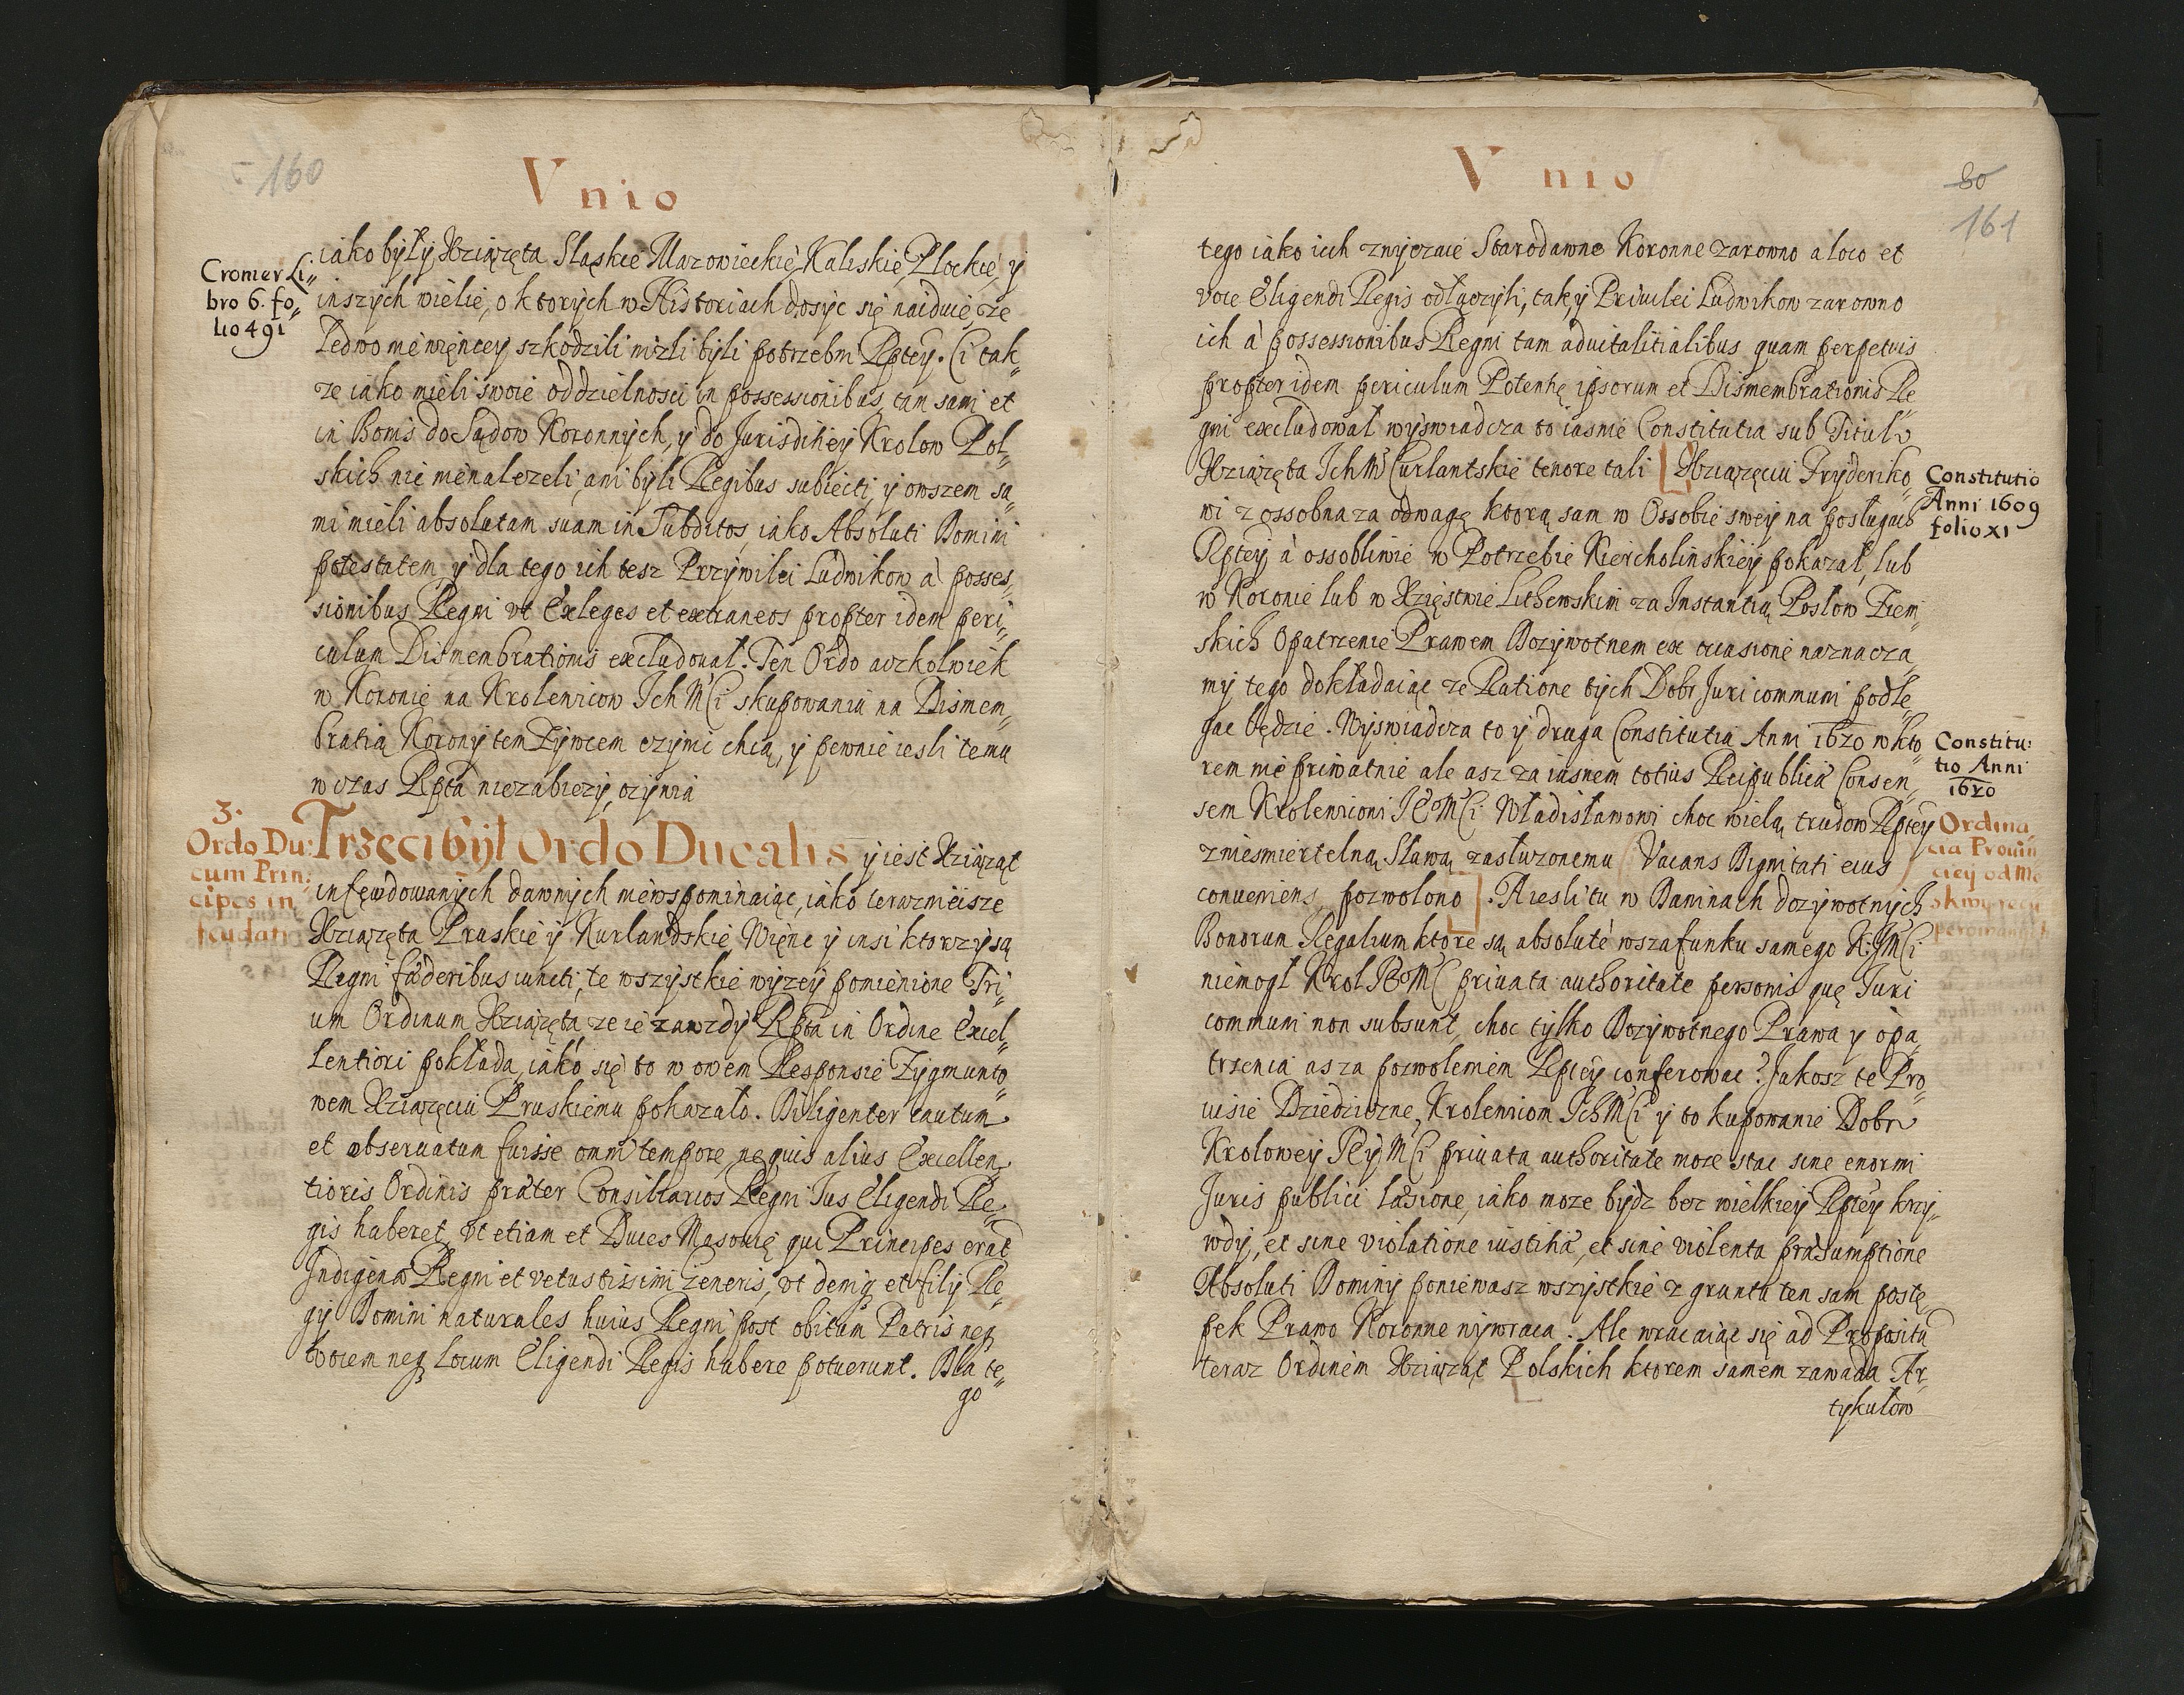 160
V nio
Cromer Li„
bro 6. fo„
lio 491
iako były Xziązęta Sląskie Mazowieckie, Kaliskie, Plockie, y
inszych wielie, o ktorych w Historiach dosyc się naiduie, ze
Ledwo nie więncey szkodzili nizli byli potrzebni Rptey. Ci tak„
ze iako mieli swoie oddzielnosci in possessionibus, tam sami et
in Bonis do Sądow Koronnych, y do Jurisdihey Krolow Pol„
skich nie nienalezeli, ani byli Regibus subiecti, y owszem sa„
mi mieli absolutam suam in Subditos, iako Absoluti Domini
potestatem, y dla tego ich tesz Przywilei Ludwikow à posses„
sionibus Regni vt Exleges et extraneos propter idem peri„
culum Dismembrationis excludował. Ten Ordo aczkolwiek
w Koronie na Krolewicow Ich Mci skupowaniu na Dismem„
bratią Korony tem Zywcem czynic chcą, y pewnie iesli temu
wczas Rpta niezabiezy, oczynia
3.
Ordo Du:
cum Prin:
cipes in
feudati
Trzeci był Ordo Ducalis y iest Xziąząt
infewdowanych dawnych niewspominaiąc, iako terazniejsze
Xziązęta Pruskie y Kurlandskie, Więnc y insi ktorzy są
Regni fæderibus iuncti, te wszystkie wyzey pomienione Tri„
um Ordinum Xziązęta, ze ie zawzdy Rpta in Ordine Excel„
lentiori pokłada, iako się to w owem Responsie Zygmunto„
wem Xziązęciu Pruskiemu pokazało. Diligenter cautum
et obseruatum fuisse omni tempore, ne quis alius Excellen„
tioris Ordinis præter Consiliarios Regni Ius Eligendi Re„
gis haberet, vt etiam et Duces Masouię qui Principes erāt
Indigenæ Regni et vetustissimi generis, vt deniq et filij Re„
gij Domini naturales huius Regni post obitum Patris neq
vocem neq locum Eligendi Regis habere potuerunt. Dla te„
go
80
161
V nio
tego iako ich zwyczaie Starodawne Koronne zarowno a loco et
voce Eligendi Regis odłączyli, tak y Priuilei Ludwikow zarowno
ich à possessionibus Regni tam aduitalitialibus quam perpetuis
propter idem periculum Potentię ipsorum et Dismembrationis Re„
gni excludował wyswiadcza to iasnie Constitutia sub Titulo
Xziązęta Ich Mci Curlantskie tenore tali [Xziązęciu Fryderiko„
wi z ossobna za odwagę ktorą sam w Ossobie swey na poslugach
Rptey à ossobliwie w Potrzebie Kiercholinskiey pokazał, lub
w Koronie lub w Xzięstwie Lithewskim za Instantią Poslow Ziem„
skich Opatrzenie Prawem Dozywotnem ex occasione naznacza„
my tego dokładaiąc ze Ratione tych Dobr Juri communi podle„
gac będzie. Wyswiadcza to y druga Constitutia Anni 1620 w kto„
rem nie priwatnie ale asz za iasnem totius Reipublicæ Consen„
sem Krolewicowi JEoMci Wladisławowi choc wielą trudow Rptey
z niesmiertelną Sławą zasłuzonemu (Vacans Dignitati eius
conueniens, pozwolono]. A iesli tu w Daninach dozywotnych
Bonorum Regalium ktore są absolutè wszafunku samego K. JMci
niemogl Krol JEoMC priuata authoritate personis quę Juri
communi non subsunt, choc tylko Dozywotnego Prawa y opa„
trzenia as za pozwolenim Rptey conferowac? Jakosz te Pro„
uisie Dziedziczne, Krolewiom IchMci y to kupowanie Dobr
Krolowey JEyMci priuata authoritate moze stac sine enormi
Juris publici læsione, iako moze bydz bez wielkiey Rptey krzy„
wdy, et sine violatione iustitiæ, et sine violenta præsumptione
Absoluti Dominij poniewasz wszystkie z gruntu ten sam postę„
pek Prawo Koronne wywraca. Ale wracaiąc się ad Propositū
teraz Ordinem Xziąząt Polskich ktorem samem zawada Ar„
tykułow
Constitutio
Anni 1609
folio XI
Constitu:
tio Anni
1620
Ordina„
cia Prouin
ciey od Mo„